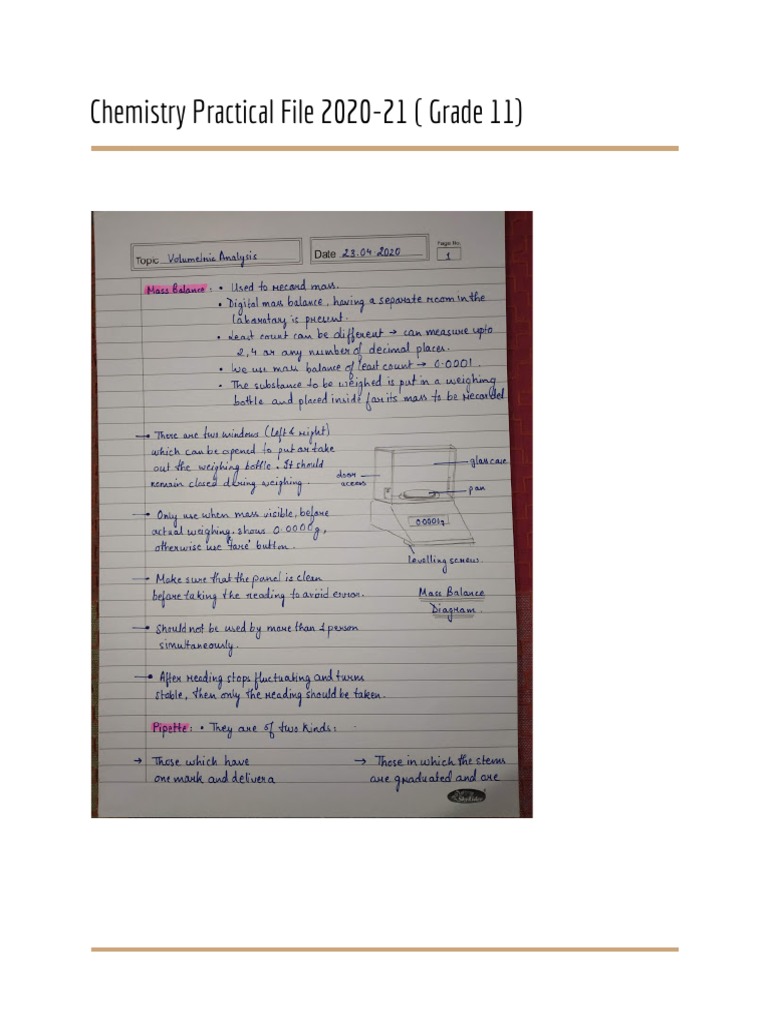 Chemistry Practical File 2020-21 ( Grade 11)
Topic Volumetric Analysis
Date 23.04.2020
Page No. 1
Mass Balance : • Used to record mass.
• Digital mass balance, having a separate room in the
laboratory is present.
• Least count can be different → can measure upto
2, 4 or any number of decimal places.
• We use mass balance of least count → 0.0001.
• The substance to be weighed is put in a weighing
bottle and placed inside for its mass to be recorded
→ There are two windows (left & right)
which can be opened to put or take
out the weighing bottle. It should
remain closed during weighing.
door
access
glass case
pan
0.0001g
levelling screws.
Mass Balance
Diagram.
→ Only use when mass visible, before
actual weighing, shows 0.0000g,
otherwise use 'tare' button.
→ Make sure that the panel is clean
before taking the reading to avoid error.
→ Should not be used by more than 1 person
simultaneously.
→ After reading stops fluctuating and turns
stable, then only the reading should be taken.
Pipette : • They are of two kinds :
→ Those which have
one mark and deliver a
→ Those in which the stems
are graduated and are